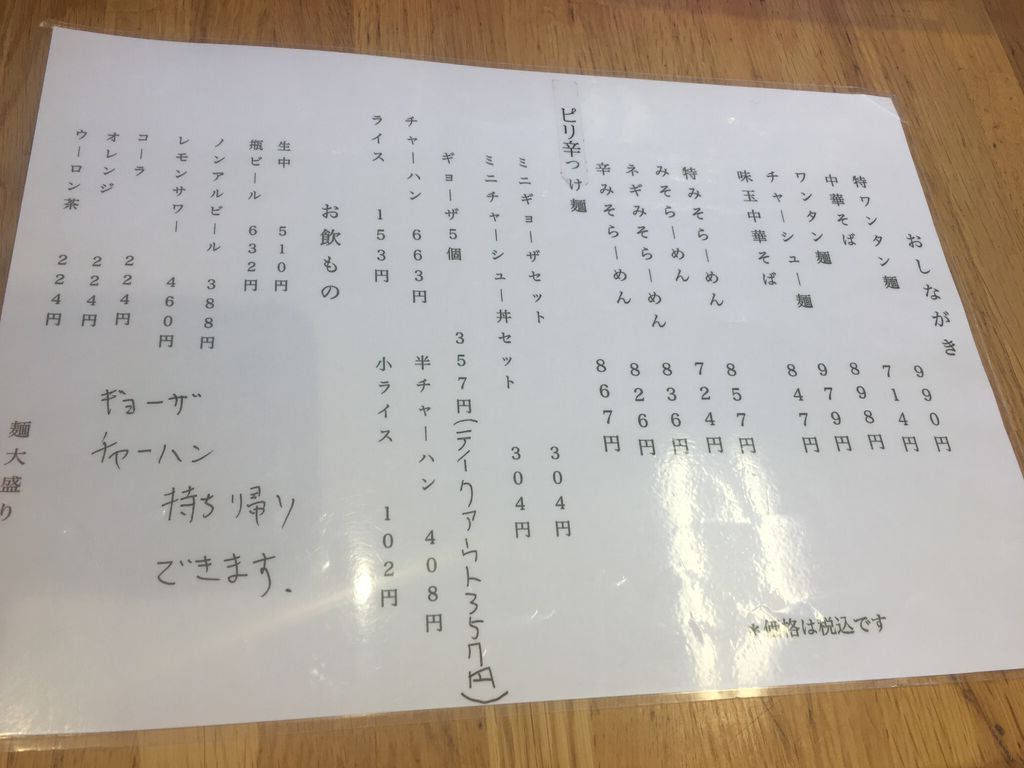 おしながき
特ワンタン麺 990円
中華そば 714円
ワンタン麺 898円
チャーシュー麺 979円
味玉中華そば 847円
特みそらーめん 857円
みそらーめん 724円
ネギみそらーめん 836円
辛みそらーめん 826円
ピリ辛つけ麺 867円
ミニギョーザセット 304円
ミニチャーシュー丼セット 304円
ギョーザ5個 357円(テイクアウト357円)
チャーハン 663円 半チャーハン 408円
ライス 153円 小ライス 102円
＊価格は税込です
お飲もの
生中 510円
瓶ビール 632円
ノンアルビール 388円
レモンサワー 460円
コーラ 224円
オレンジ 224円
ウーロン茶 224円
ギョーザ
チャーハン
持ち帰り
できます.
麺大盛り